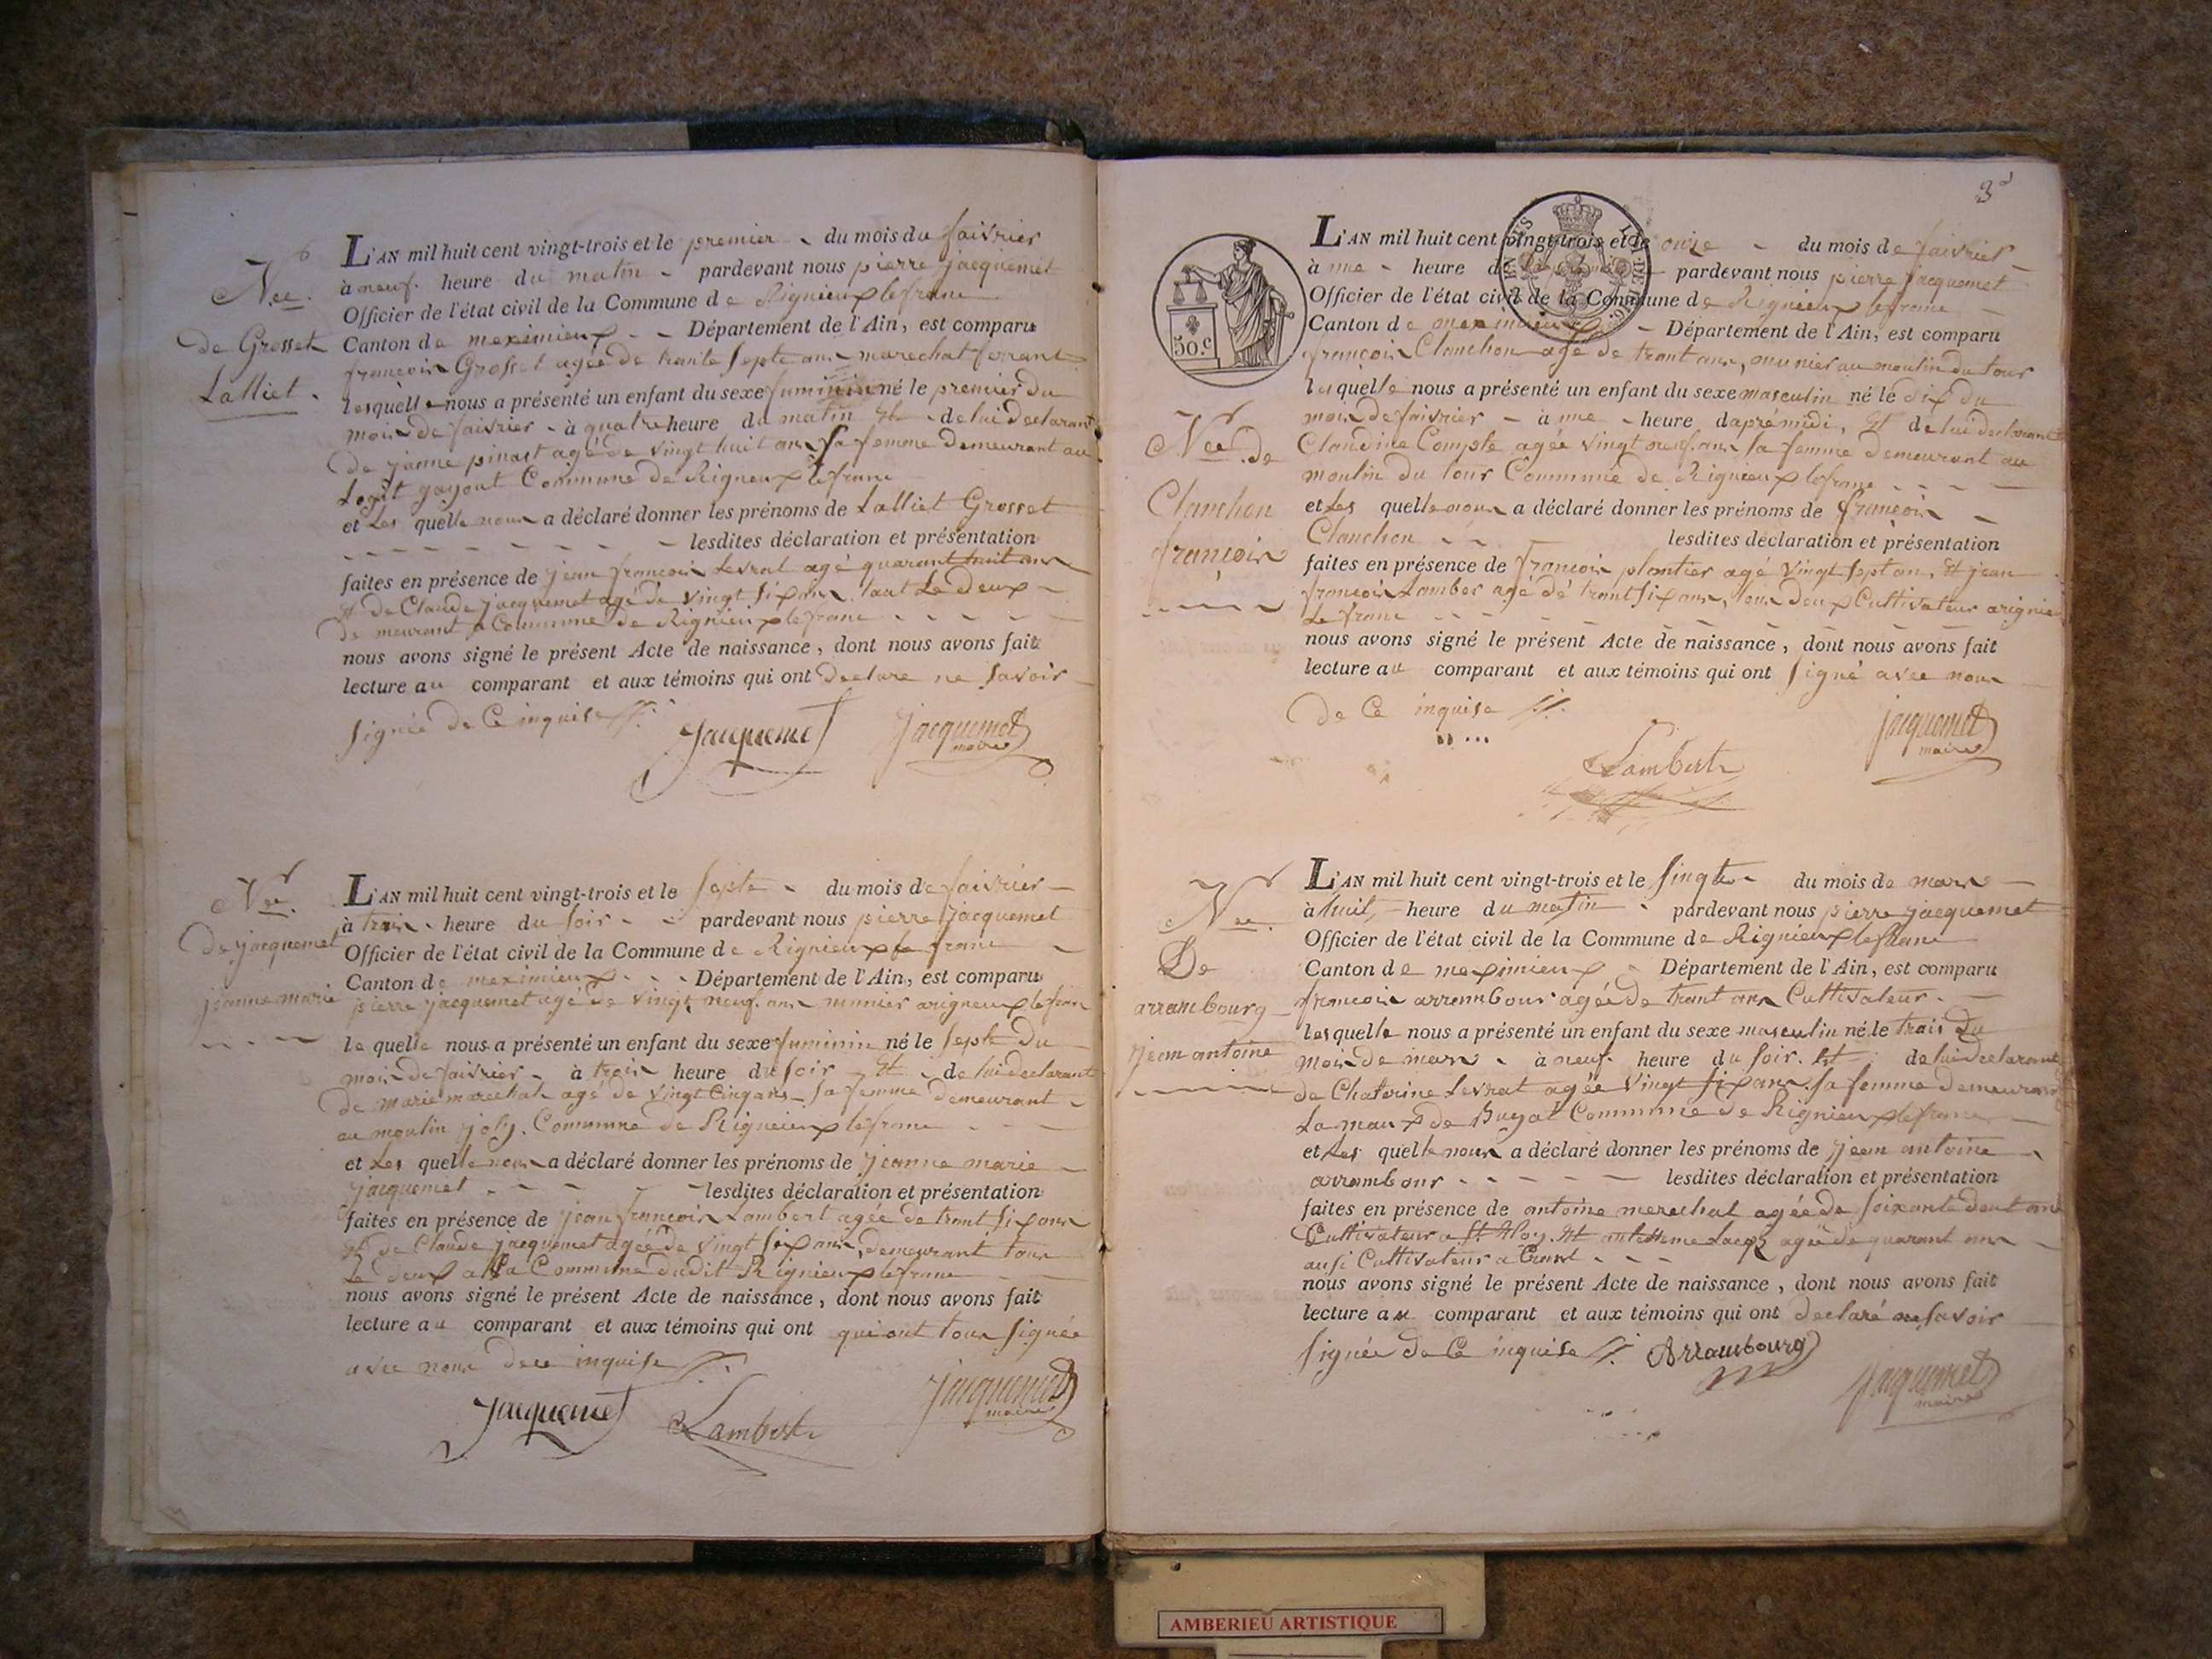 Nee.
de Grosset
Lalliet.
L'AN mil huit cent vingt-trois et le premier du mois du faivrier
à neuf heure du matin pardevant nous pierre jacquemet
Officier de l'état civil de la Commune de Rignieux lefranc
Canton de meximieux Département de l'Ain, est comparu
francois Grosset agée de trante septe ans marechat ferrant
lesquelle nous a présenté un enfant du sexe fuminin né le premier du
mois de faivrier à quatre heure du matin Et de lui declarant
de janne pinast agé de vingt huit ans sa femme demeurant au
Commune de Rigneux lefranc
et Les quelle nous a déclaré donner les prénoms de Lalliet Grosset
lesdites déclaration et présentation
faites en présence de jean francois Levrat agé quarant huit ans
Et de Claude jacquemet agé de vingt six ans, tout Le deux
de meurant a Commune de Rignieux lefranc
nous avons signé le présent Acte de naissance, dont nous avons fait
lecture au comparant et aux témoins qui ont declare ne savoir
signée de Ce inquise
Jacquemet jacquemet
maire
Nee.
De jacquemet
jeanne marie
L'AN mil huit cent vingt-trois et le septe du mois de faivrier
à trois heure du soir pardevant nous pierre jacquemet
Officier de l'état civil de la Commune de Rignieux le franc
Canton de meximieux Département de l'Ain, est comparu
pierre jacquemet agé de vingt neuf ans munier arigneux lefranc
le quelle nous a présenté un enfant du sexe fuminin né le septe du
mois de faivrier à trois heure du soir Et de lui declarant
de marie marechat agé de vingt Cinq ans sa femme demeurant
au moulin joly. Commune de Rignieux lefranc
et Les quelle nous a déclaré donner les prénoms de jeanne marie
jacquemet lesdites déclaration et présentation
faites en présence de jean francois Lambert agée de trant six ans
Et de Claude jacquemet agée de vingt six ans, demeurant tous
Le deux a la Commune dudit Rignieux lefranc
nous avons signé le présent Acte de naissance, dont nous avons fait
lecture au comparant et aux témoins qui ont qui ont tous signée
avec nous de ce inquise
Jacquemet Lambert jacquemet
maire
3
50.c
Nee de
Clanchon
françois
L'AN mil huit cent vingt-trois et le onze du mois de faivrier
à une heure pardevant nous pierre jacquemet
Officier de l'état civil de la Commune de Rignieux lefranc
Canton de meximieux Département de l'Ain, est comparu
françois Clanchon agé de trant ans, munier au moulin du tour
laquelle nous a présenté un enfant du sexe masculin né le dix du
mois de faivrier à une heure daprémidi, Et de lui declarant
Claudine Compte agée vingt neuf ans sa femme demeurant au
moulin du tour Commune de Rignieux lefranc
et Les quelle nous a déclaré donner les prénoms de françois
Clanchon lesdites déclaration et présentation
faites en présence de francois plantier agé vingt sept ans, Et jean
françois Lamber agé de trant six ans, tous deux Cultivateur arignie
Le franc
nous avons signé le présent Acte de naissance, dont nous avons fait
lecture au comparant et aux témoins qui ont signé avec nous
de Ce inquise
Lambert jacquemet
maire
Nee.
De
arrambourg
jean antoine
L'AN mil huit cent vingt-trois et le singte du mois de mars
à huit heure du matin pardevant nous pierre jacquemet
Officier de l'état civil de la Commune de Rignieux lefranc
Canton de meximieux Département de l'Ain, est comparu
francois arrambour agée de trant ans Cultivateur.
lesquelle nous a présenté un enfant du sexe masculin né le trais du
mois de mars à neuf heure du soir. Et de lui declarant
de Chaterine Levrat agée vingt six ans sa femme demeurant
Commune de Rignieux lefranc
et Les quelle nous a déclaré donner les prénoms de jean antoine
arrambour lesdites déclaration et présentation
faites en présence de antoine marechat agée de soixante deux ans
Cultivateur a St Eloy. Et agée de quarant ans
ausi Cultivateur a Crant
nous avons signé le présent Acte de naissance, dont nous avons fait
lecture au comparant et aux témoins qui ont declaré ne savoir
signée de Ce inquise Arrambourg
jacquemet
maire
AMBERIEU ARTISTIQUE